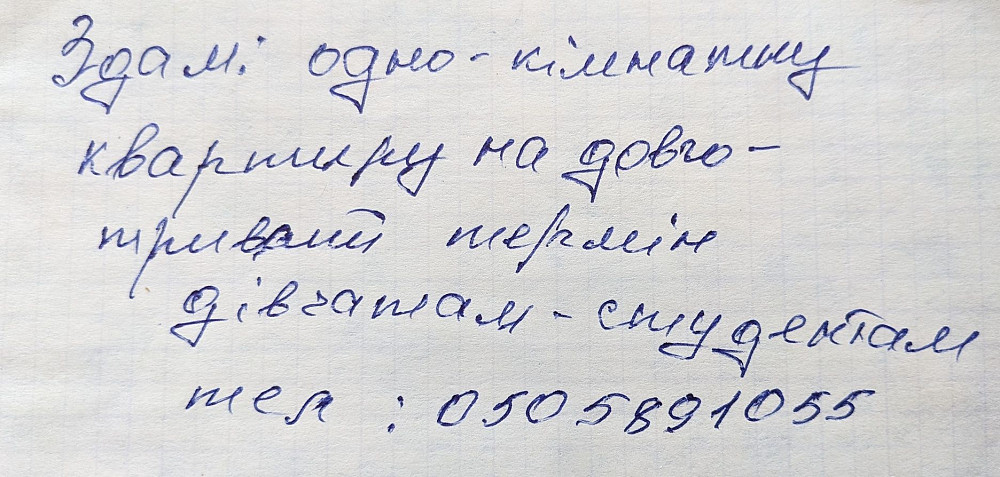 Здам: одно-кімнатну
квартиру на довго-
тривалий термін
дівчатам-студентам
тел : 0505891055